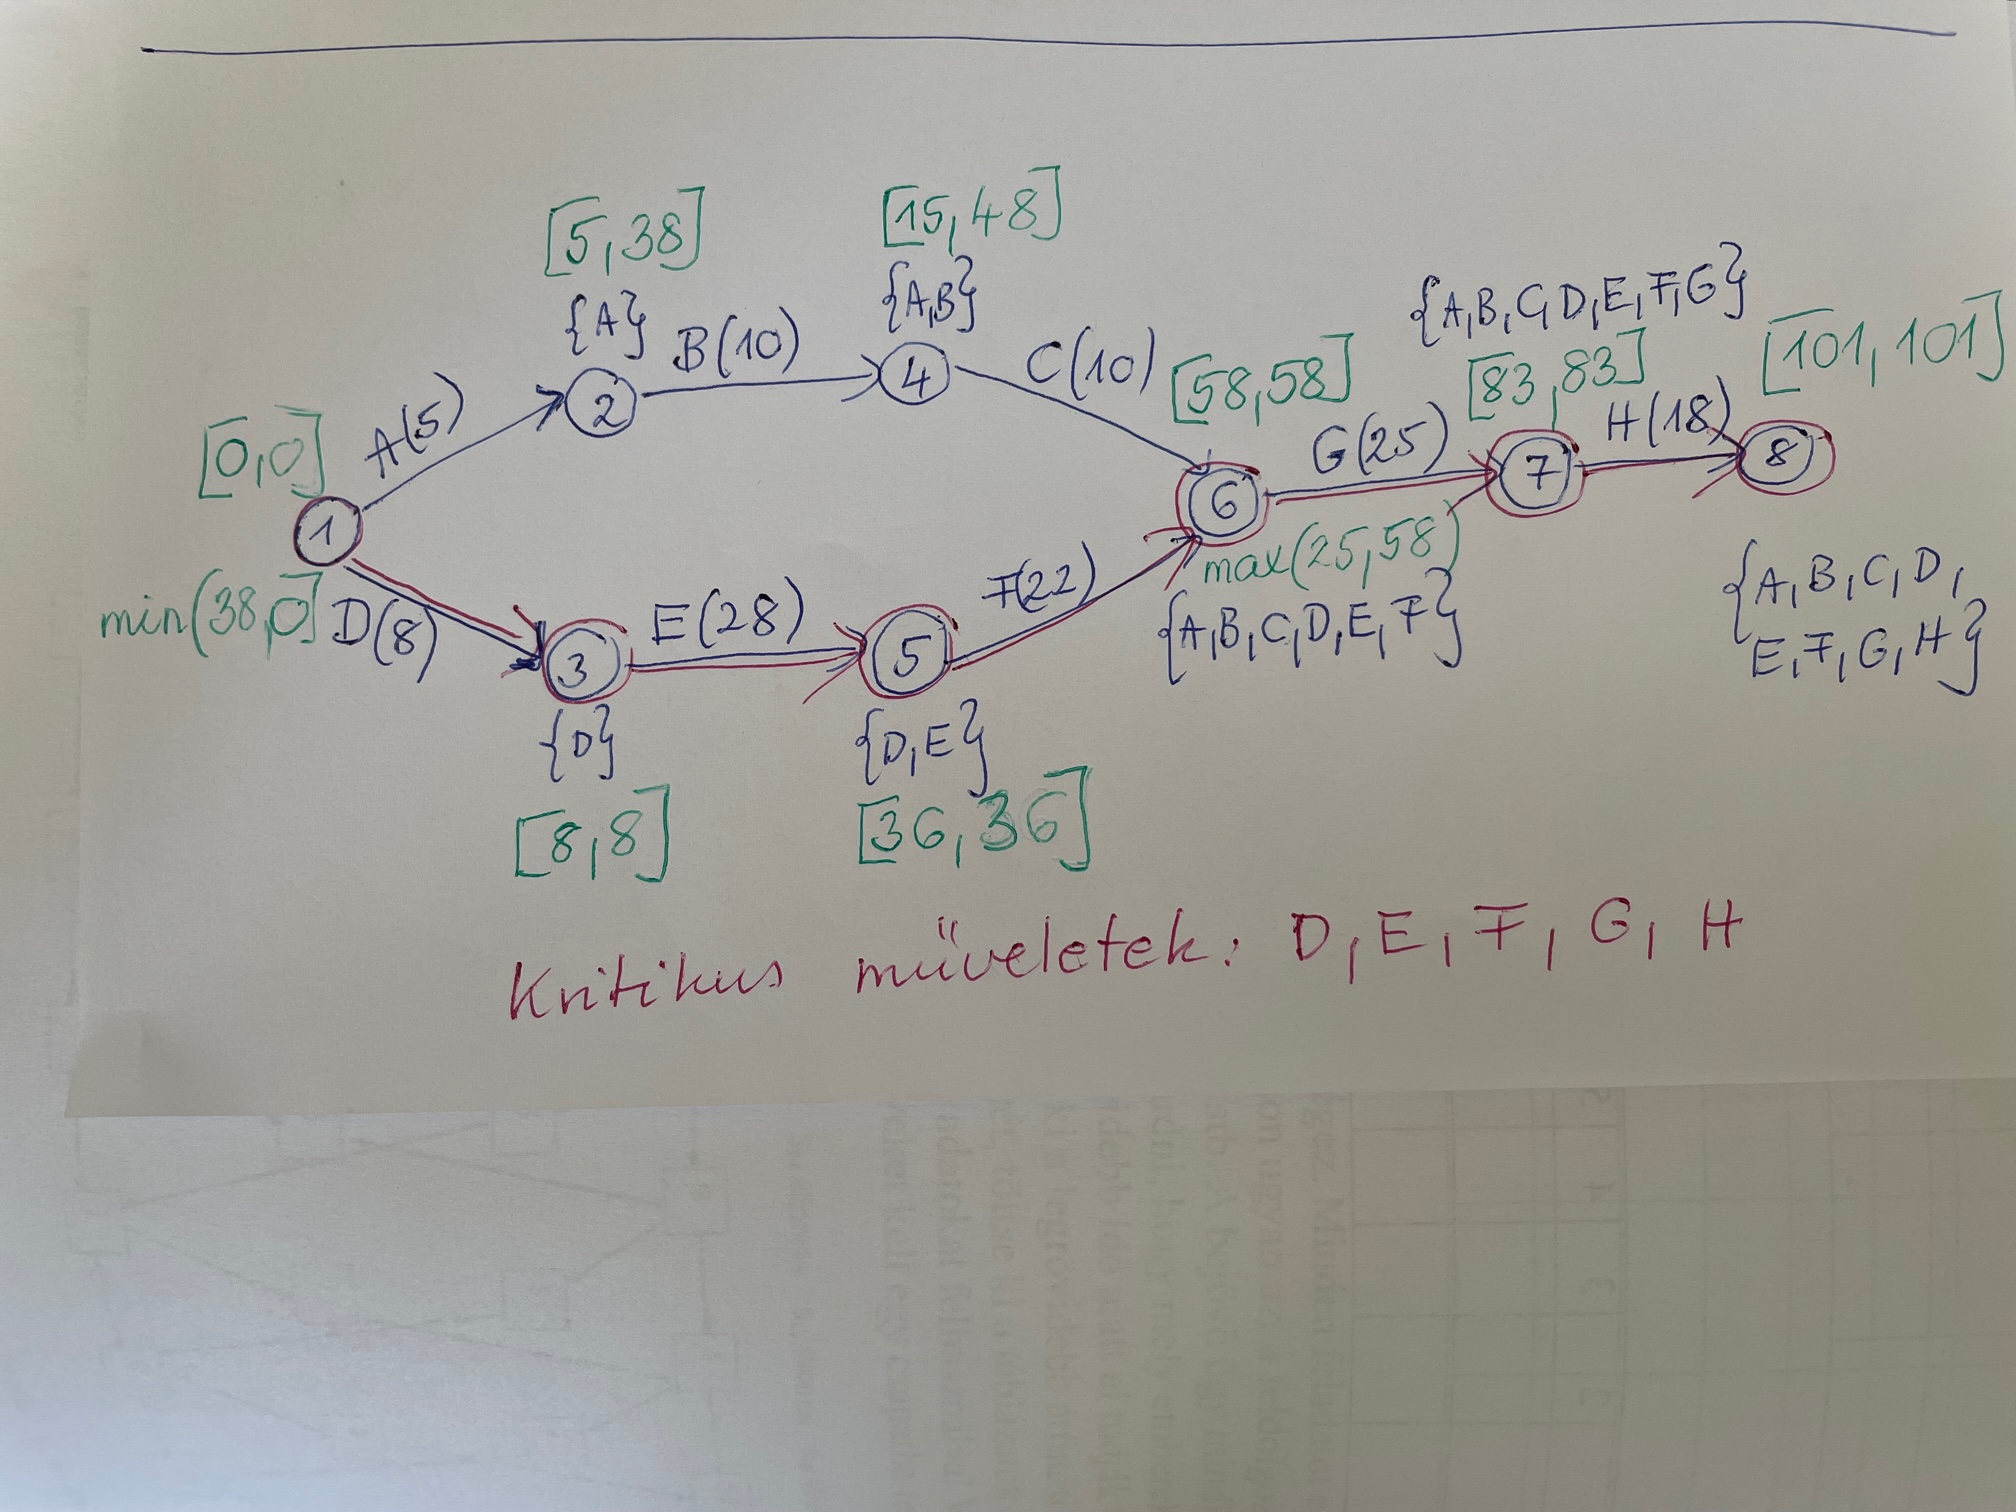 [5,38]
[15,48]
{A}
B(10)
{A,B}
{A,B,C,D,E,F,G}
[0,0]
A(5)
2
4
C(10)
[58,58]
[83,83]
H(18)
[101,101]
1
G(25)
6
7
8
min(38,0]
D(8)
E(28)
F(22)
max(25,58)
3
5
{A,B,C,D,E,F}
{A,B,C,D,
E,F,G,H}
{D}
{D,E}
[8,8]
[36,36]
Kritikus műveletek: D, E, F, G, H